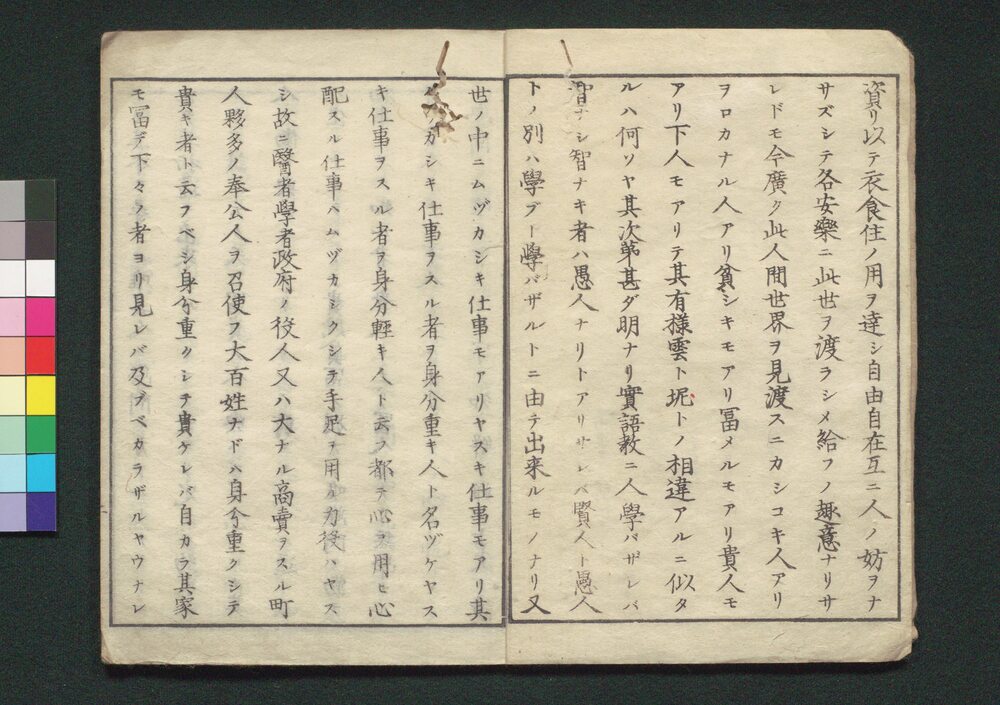 資リ以テ衣食住ノ用ヲ達シ自由自在互ニ人ノ妨ヲナ
サズシテ各安樂ニ此世ヲ渡ラシメ給フノ趣意ナリサ
レドモ今廣ク此人間世界ヲ見渡スニカシコキ人アリ
ヲロカナル人アリ貧シキモアリ冨メルモアリ貴人モ
アリ下人モアリテ其有様雲ト坭トノ相違アルニ似タ
ルハ何ソヤ其次第甚ダ明ナリ實語教ニ人學バザレバ
智ナシ智ナキ者ハ愚人ナリトアリサレバ賢人ト愚人
トノ別ハ學ブト學バザルトニ由テ出来ルモノナリ又
世ノ中ニムヅカシキ仕事モアリヤスキ仕事モアリ其
カシキ仕事ヲスル者ヲ身分重キ人ト名ヅケヤス
キ仕事ヲスル者ヲ身分輕キ人ト云フ都テ心ヲ用ヒ心
配スル仕事ハムヅカシクシテ手足ヲ用ル力役ハヤス
シ故ニ醫者學者政府ノ役人又ハ大ナル商賣ヲスル町
人夥多ノ奉公人ヲ召使フ大百姓ナドハ身分重クシテ
貴キ者ト云フベシ身分重クシテ貴ケレバ自カラ其家
モ冨デ下々ノ者ヨリ見レバ及ブベカラザルヤウナレ